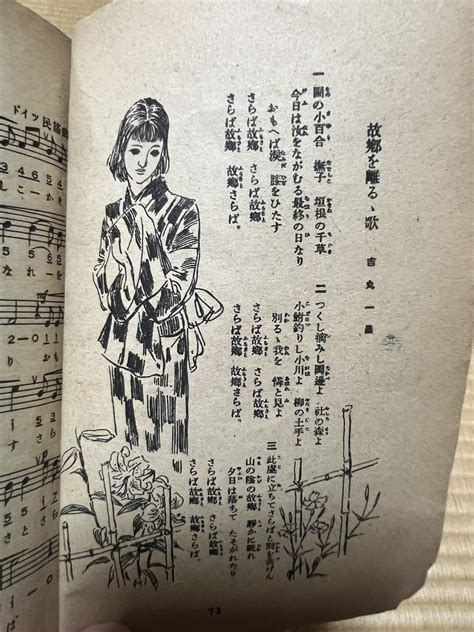 故鄕を離るゝ歌
吉丸一昌
一 園の小百合 撫子 垣根の千草
今日は汝をながむる最終の日なり
おもへば淚 膝をひたす
さらば故鄕 さらば故鄕
さらば故鄕 故鄕さらば。
二 つくし摘みし岡邊よ 社の森よ
小鮒釣りし小川よ 柳の土手よ
別るゝ我を 憐と見よ
さらば故鄕 さらば故鄕
さらば故鄕 故鄕さらば。
三 此處に立ちてさらばと別を吿げん
山の陰の故鄕 靜かに眠れ
夕日は落ちて たそがれたり
さらば故鄕 さらば故鄕
さらば故鄕 故鄕さらば。
73
ドイツ民謠